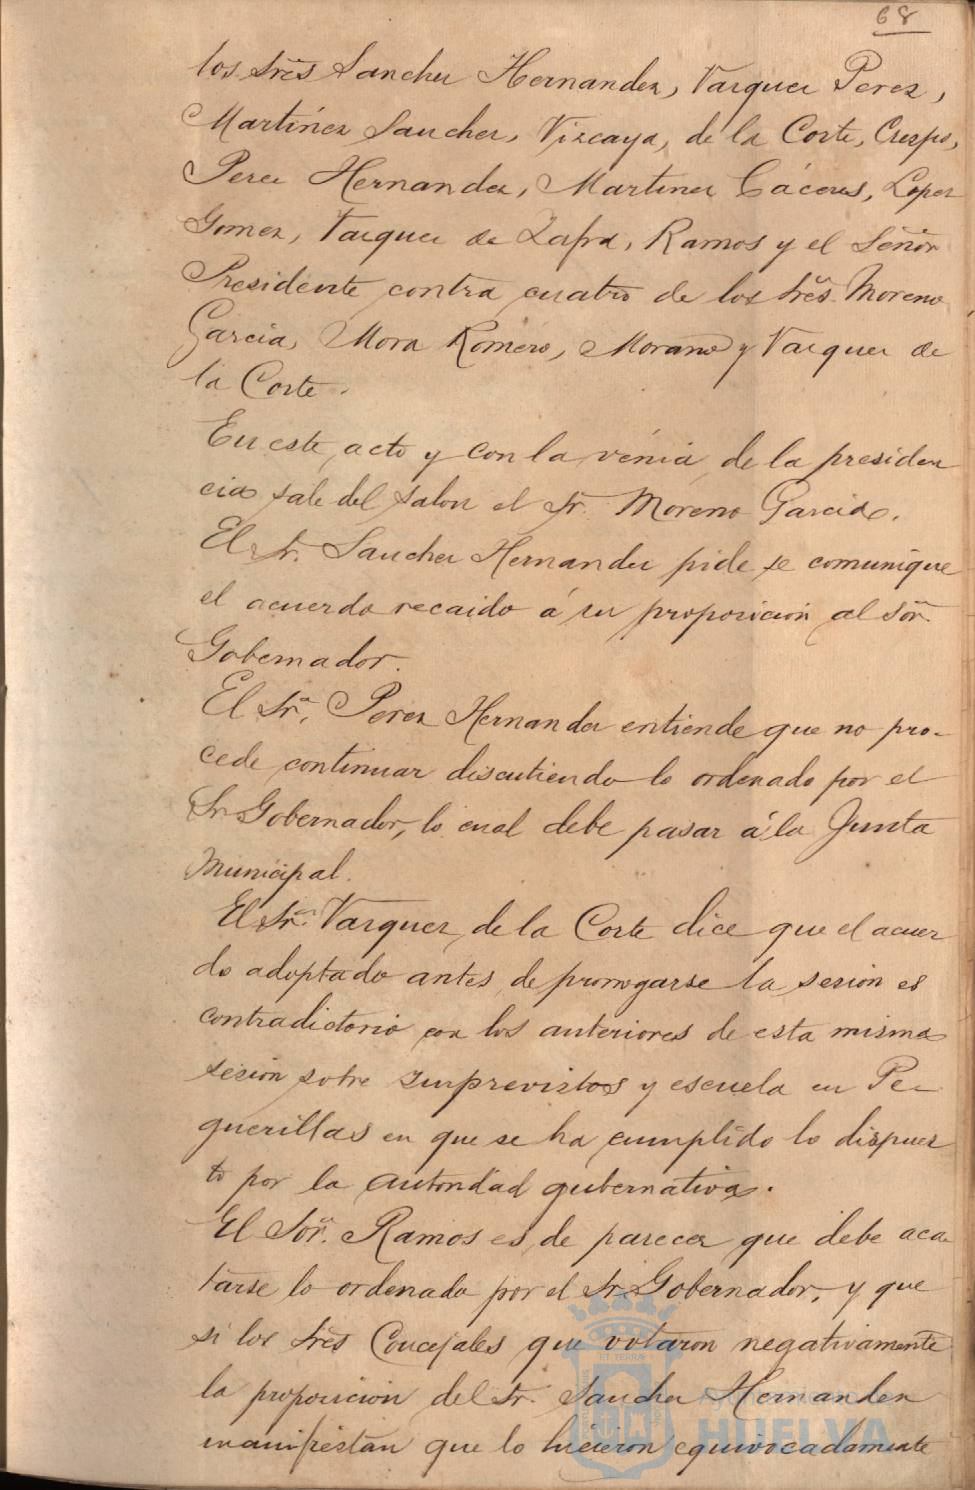 68
los Sres Sanchez Hernandez, Vazquez Perez,
Martínez Sanchez, Vizcaya, de la Corte, Crespo,
Perez Hernandez, Martinez Cáceres, Lopez
Gomez, Vazquez de Zafra, Ramos y el Señor
Presidente contra cuatro de los Sres. Moreno
García, Mora Romero, Morano y Vazquez de
la Corte.
En este acto y con la vénia de la presiden
cia sale del salon el Sr. Moreno García.
El Sr. Sanchez Hernandez pide se comunique
el acuerdo recaido á su proposicion al Sor.
Gobernador.
El Sr. Perez Hernandez entiende que no pro-
cede continuar discutiendo lo ordenado por el
Sr Gobernador, lo cual debe pasar á la Junta
Municipal.
El Sr. Vazquez de la Corte dice que el acuer
do adoptado antes de prorrogarse la sesion es
contradictorio con los anteriores de esta misma
sesion sobre Imprevistos y escuela en Pe-
guerillas en que se ha cumplido lo dispues
to por la autoridad gubernativa.
El Sor. Ramos es de parecer que debe aca
tarse lo ordenado por el Sr Gobernador, y que
si los Sres Concejales que votaron negativamente
la proposicion del Sr. Sanchez Hernandez
manifiestan que lo hicieron equivocadamente
Ayuntamiento de
HUELVA